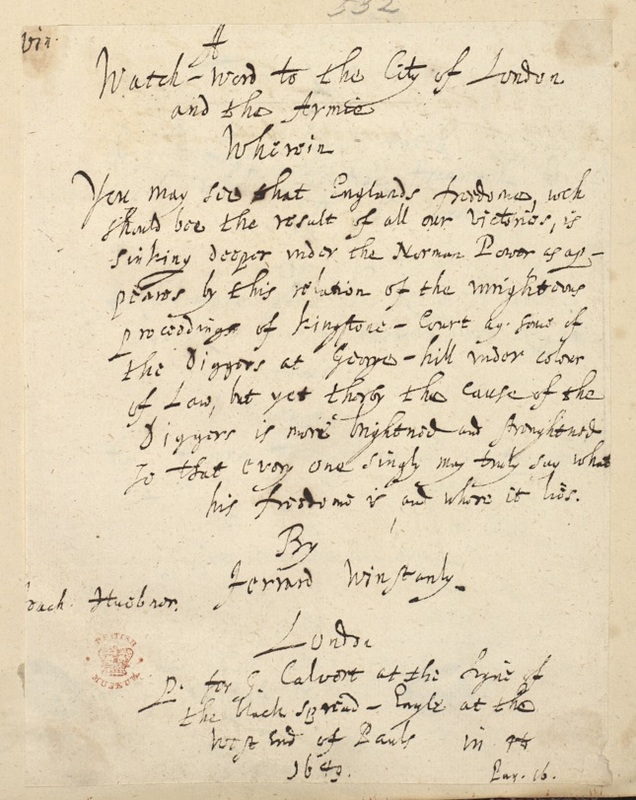 532
vin.
A
Watch-Word to the City of London
and the Armie
Wherein
You may see that Englands freedome, wch
should bee the result of all our victories, is
sinking deeper under the Norman Power as ap-
peares by this relation of the unrighteous
proceedings of Kingstone-Court ag. some of
the Diggers at George-hill under colour
of Law, but yet therby the cause of the
Diggers is more brightned and strenghtned
So that every one singly may truly say what
his freedome is and where it lies.
By
Jerrard Winstanly.
Joach. Huebner.
London
BRITISH MUSEUM
p. for G. Calvert at the signe of
the black spread-Eagle at the
West End of Pauls in
1649. Pag. 16.